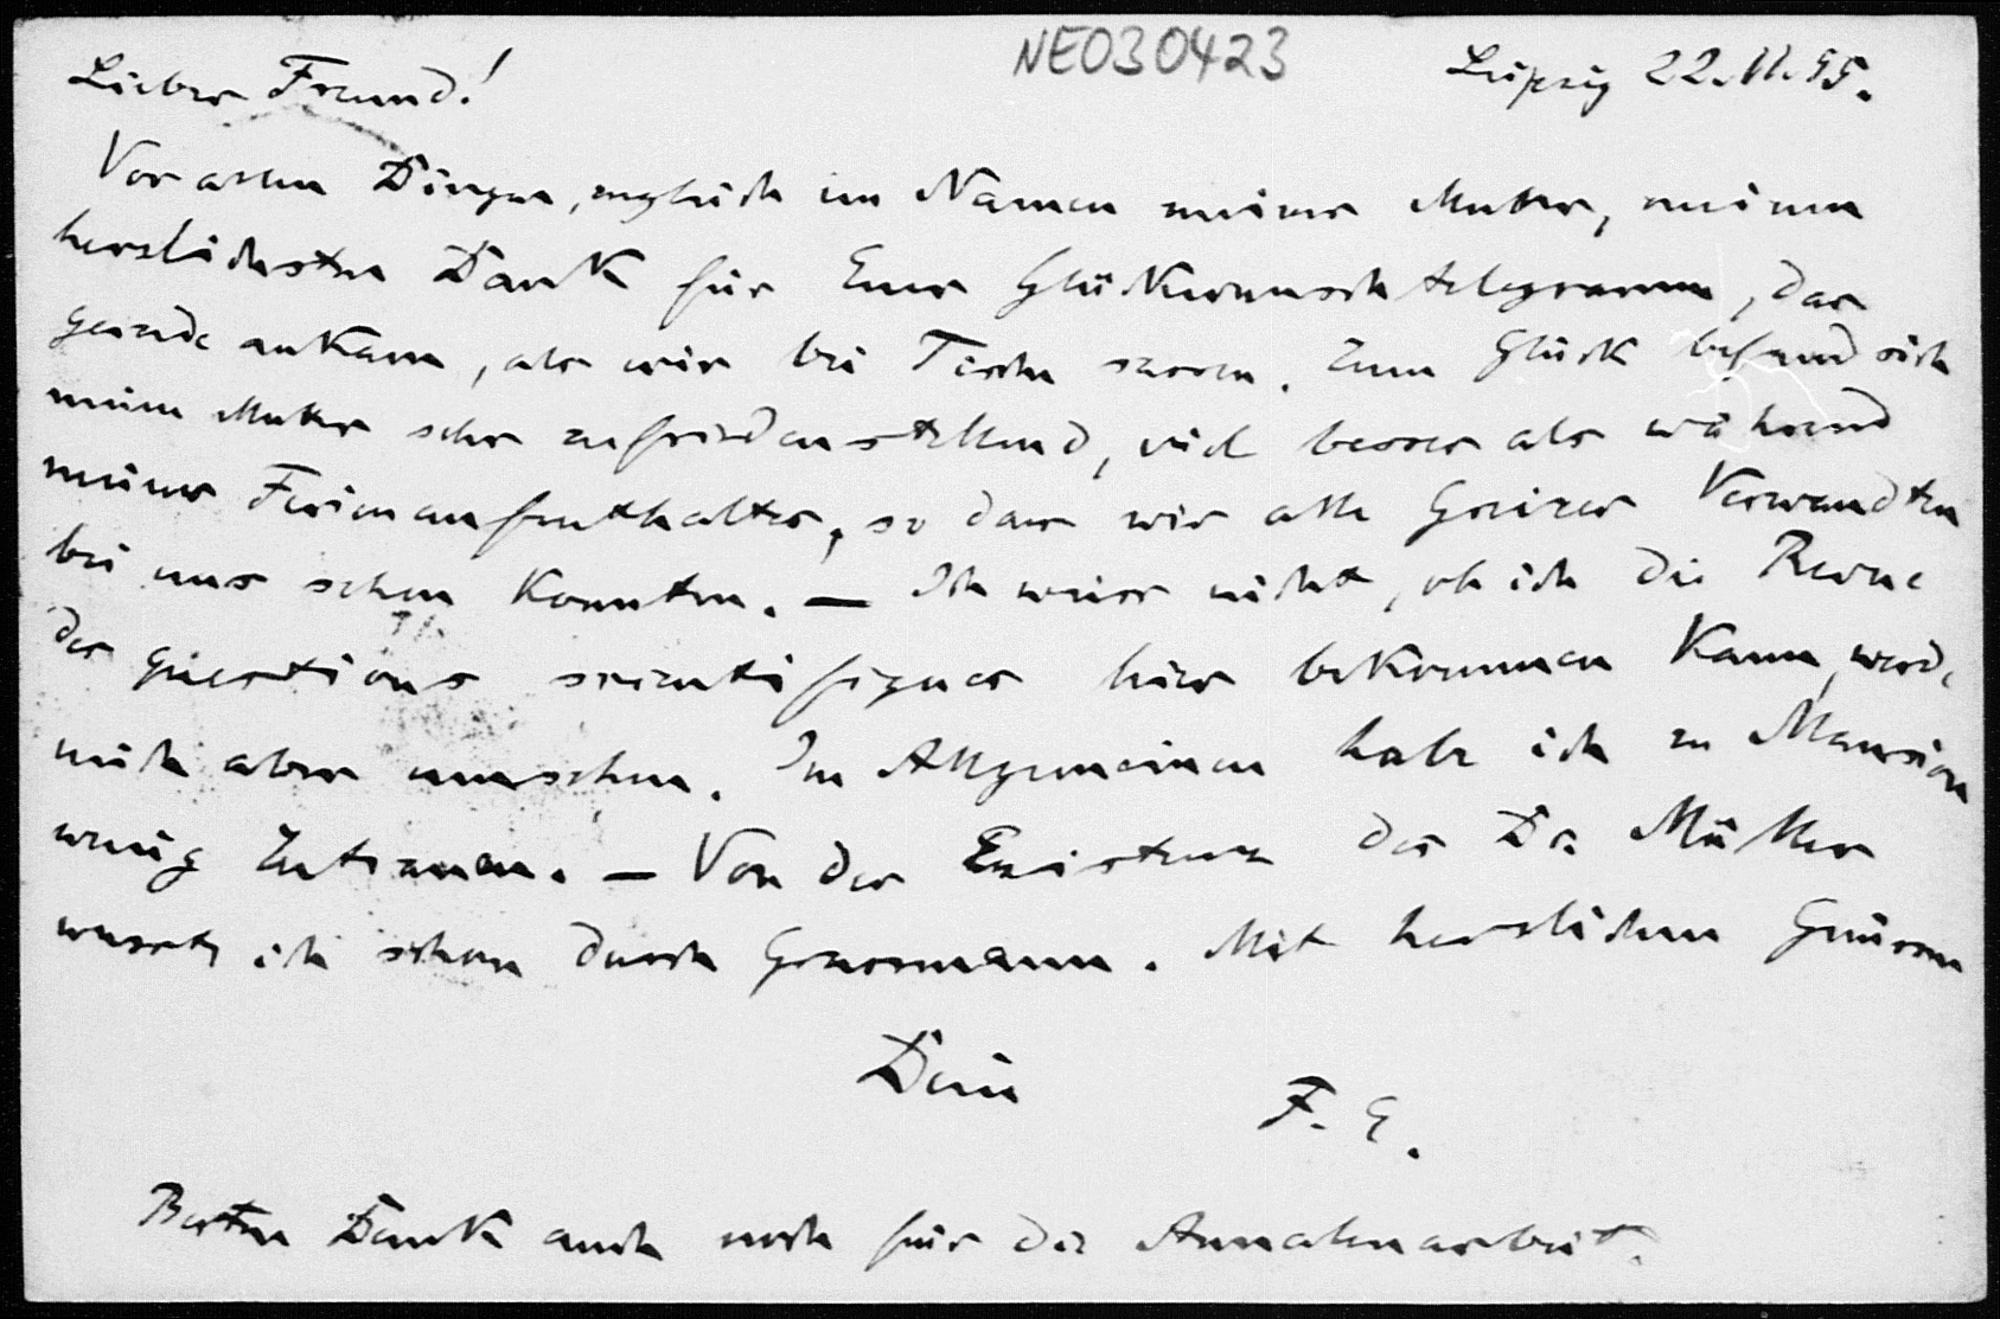 NE030423
Leipzig 22.11.95.
Lieber Freund!
Vor allen Dingen, zugleich im Namen meiner Mutter, meinen
herzlichsten Dank für Euer Glückwunschtelegramm, das
gerade ankam, als wir bei Tische sassen. Zum Glück befand sich
meine Mutter sehr zufriedenstellend, viel besser als während
meines Ferienaufenthaltes, so dass wir alle Greizer Verwandten
bei uns sehen konnten. — Ich weiss nicht, ob ich die Revue
des questions scientifiques hier bekommen kann, werde
mich aber umsehen. Im Allgemeinen habe ich zu Mansion
wenig Zutrauen. — Von der Existenz des Dr. Müller
wusste ich schon durch Grassmann. Mit herzlichen Grüssen
Dein
F. E.
Besten Dank auch noch für die Annalenarbeit.